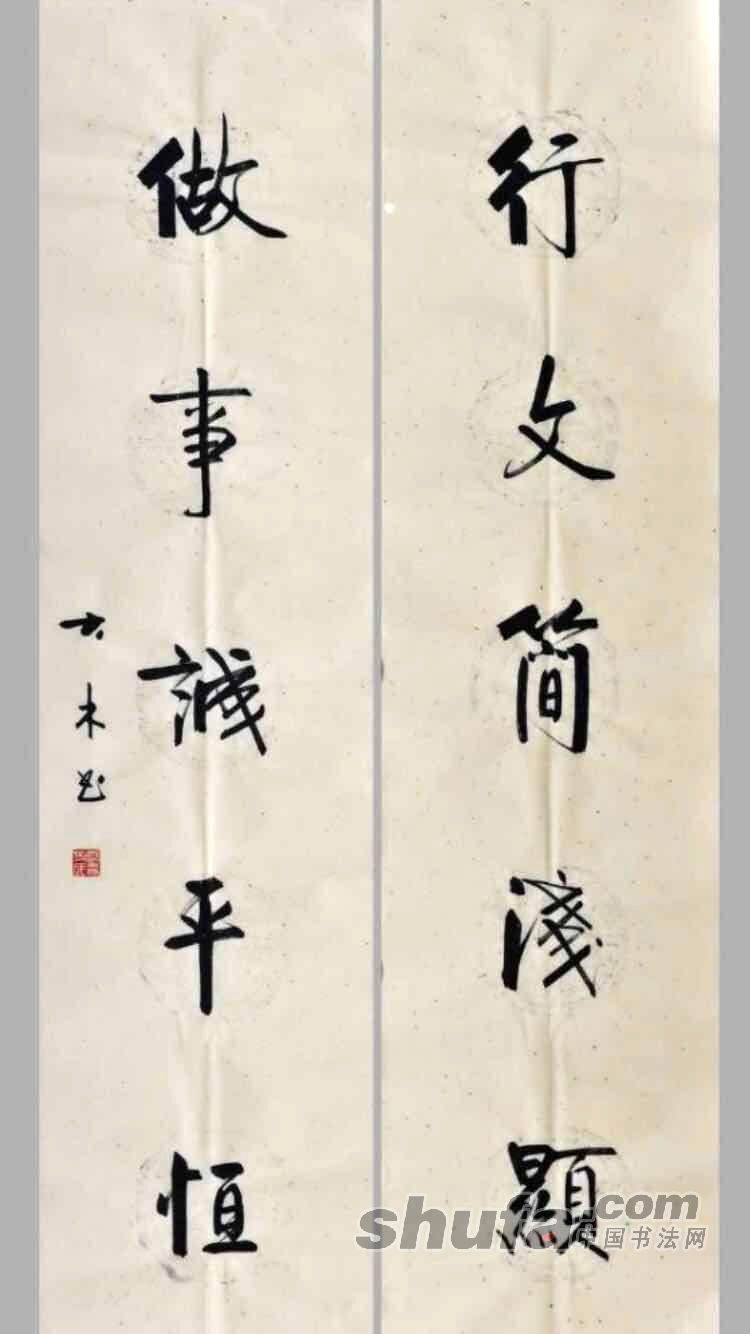 行文简淺顯
做事誠平恒
shufa.com
中国书法网